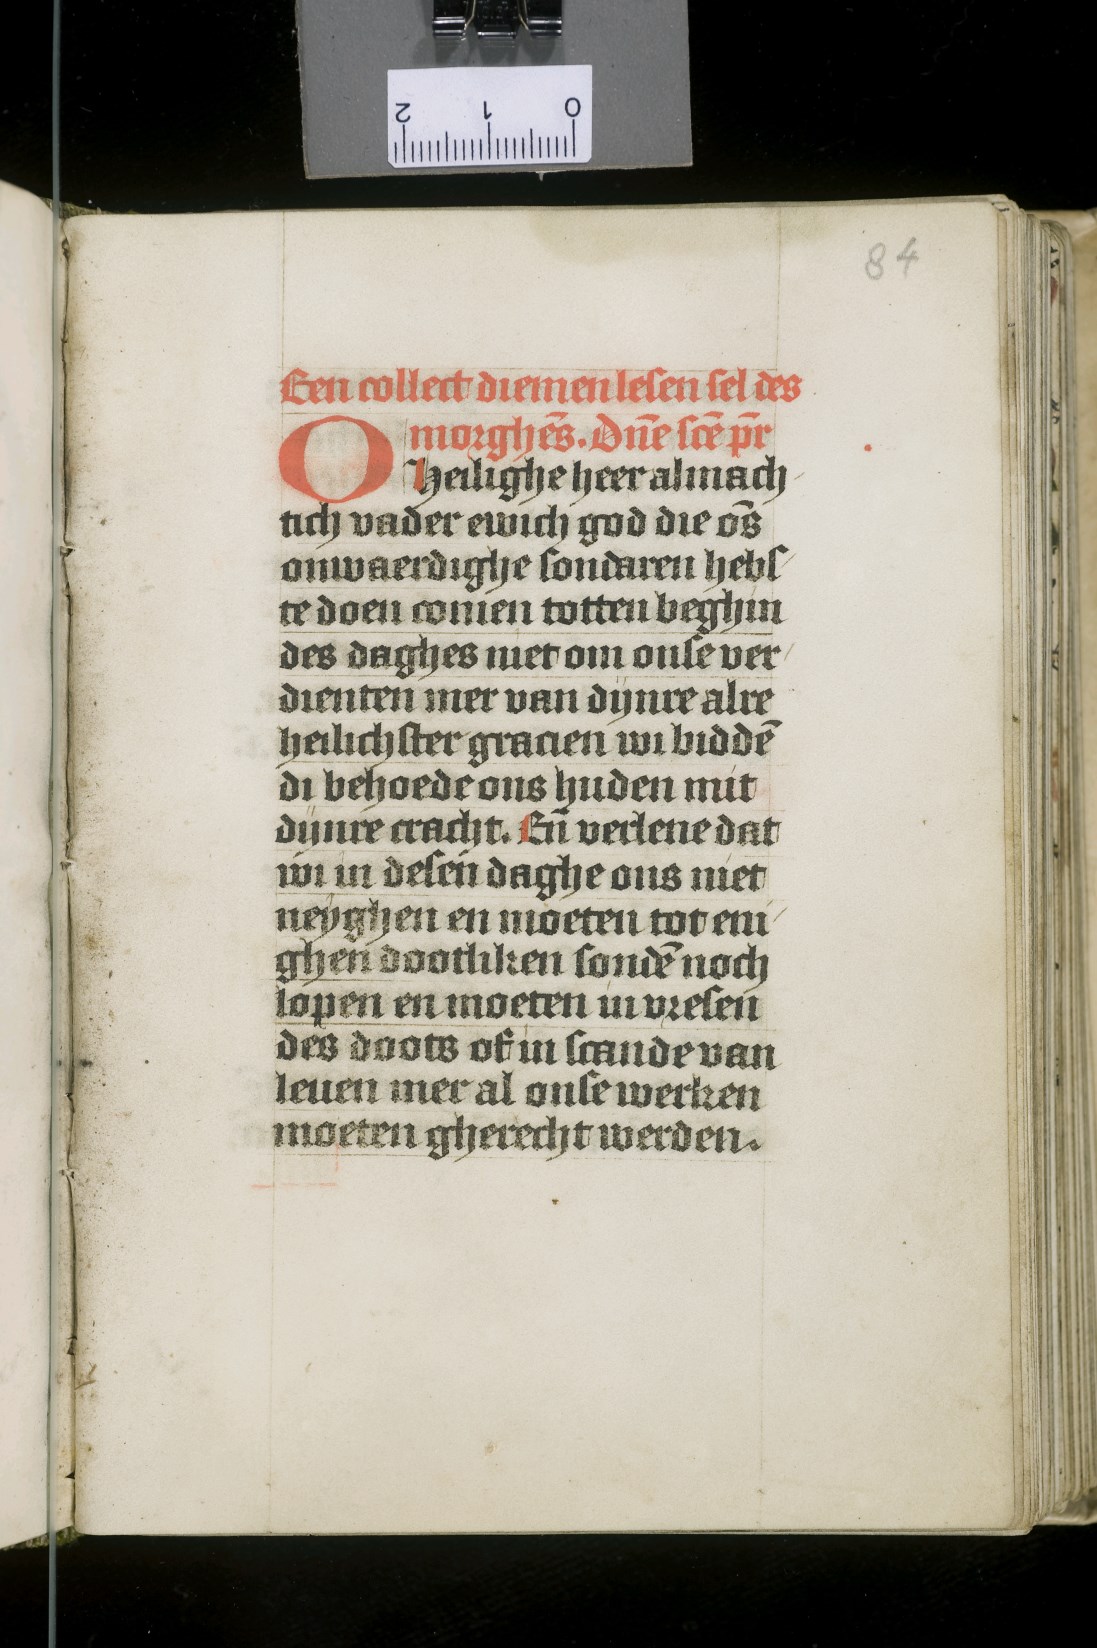 2 1 0
84
Een collect diemen lesen sel des
morghēs. Dn̄e scē pr̄
O Heilighe heer almach
tich vader ewich god die ōs
onwaerdighe sondaren hebs
te doen comen totten beghin
des daghes niet om onse ver
dienten mer van dijnre alre
heilichster gracien wi biddē
di behoede ons huden mit
dijnre cracht. En̄ verlene dat
wi in desen daghe ons niet
neyghen en moeten tot eni
ghen dootliken sondē noch
lopen en moeten in vresen
des doots of in scande van
leuen mer al onse werken
moeten gherecht werden.